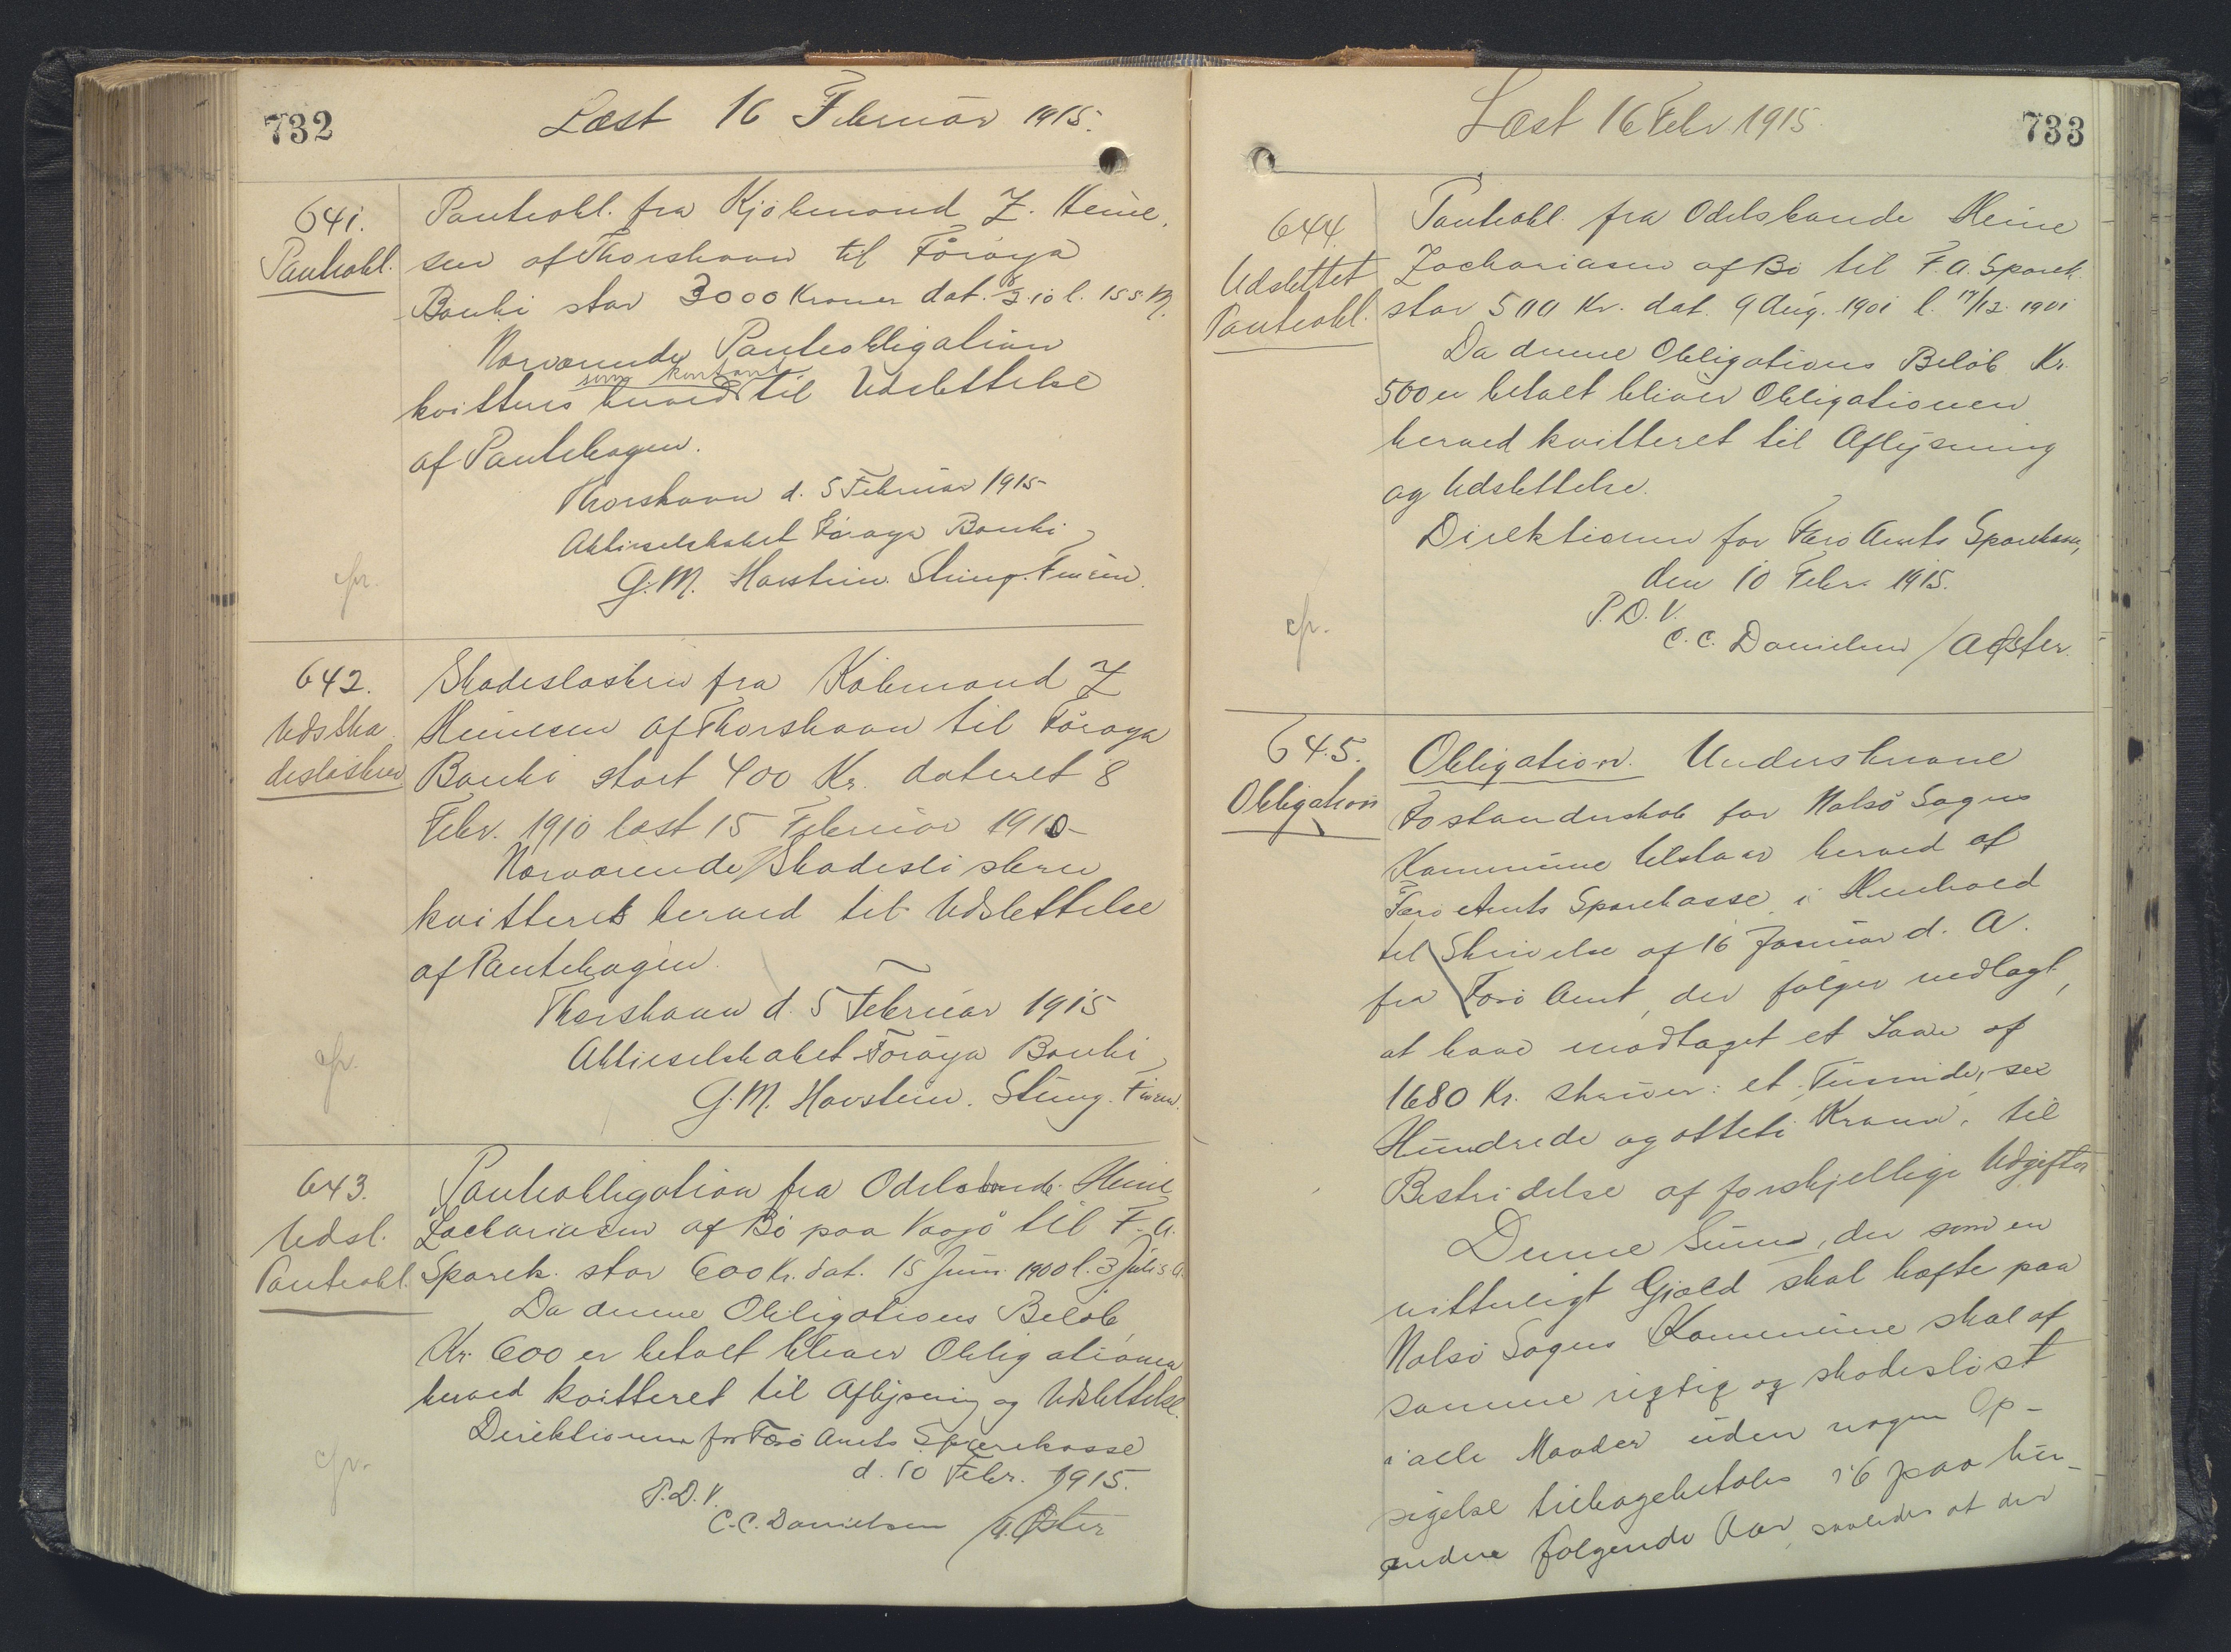 732
Læst 16 Februar 1915.
641.
Panteobl.
Panteobl. fra Kjøbmand Z. Heine,
sen af Thorshavn til Føroya
Banki stor 3000 Kroner dat. 8/2.10 l. 15 s. M.
Nærværende Panteobligation
som kvitteret
kvitteres herved til Udslettelse
af Pantebogen.
Thorshavn d. 5 Februar 1915
Aktieselskabet Føroya Banki
G. M. Havstein.
cfr.
642.
Uds Ska
desløsbrev
Skadesløsbrev fra Købmand Z
Heinesen af Thorshavn til Føroya
Banki stort 400 Kr. dateret 8
Febr. 1910 læst 15 Februar 1910
Nærværende Skadesløsbrev
kvitteres herved til Udslettelse
af Pantebogen.
Thorshavn d. 5 Februar 1915
Aktieselskabet Føroya Banki
G. M. Havstein.
cfr.
643.
Udsl.
Panteobl.
Panteobligation fra Odelsbonde Heine
Zachariasen af Bø paa Vaagø til F. A.
Sparek. stor 600 Kr. dat. 15 Juni 1900 l. 3 Juli s. A.
Da denne Obligations Beløb
Kr. 600 er betalt bliver Obligationen
herved kvitteret til Aflysning og Udslettelse.
Direktionen for Færø Amts Sparekasse
d. 10 Febr. 1915.
P.D.V.
C.C. Danielsen / A. Øster
cfr.
Læst 16 Febr 1915
733
644.
Udslettet
Panteobl.
Panteobl. fra Odelsbonde Heine
Zachariasen af Bø til F. A. Sparek.
stor 500 Kr. dat. 9 Aug. 1901 l. 17/12 1901
Da denne Obligations Beløb Kr.
500 er betalt bliver Obligationen
herved kvitteret til Aflysning
og Udslettelse.
Direktionen for Færø Amts Sparekasse,
den 10 Febr. 1915.
P.D.V.
C.C. Danielsen / A Øster.
cfr.
645.
Obligation
Obligation. Underskrevne
Fostanderskab for Nolsø Sogns
Kommune tilstaar herved af
Færø Amts Sparekasse i Henhold
til Skrivelse af 16 Januar d. A.
fra Færø Amt, der følger vedlagt,
at have modtaget et Laan af
1680 Kr. skriver: et Tusinde, sex
Hundrede og otteti Kroner, til
Bestridelse af forskjellige Udgifter
Denne Sum, der som en
vitterligt Gjæld skal hæfte paa
Nolsø Sogns Kommune skal af
samme rigtig og skadesløst
i alle Maader uden nogen Op-
sigelse tilbagebetales i 6 paa hin-
anden følgende Aar saaledes at der